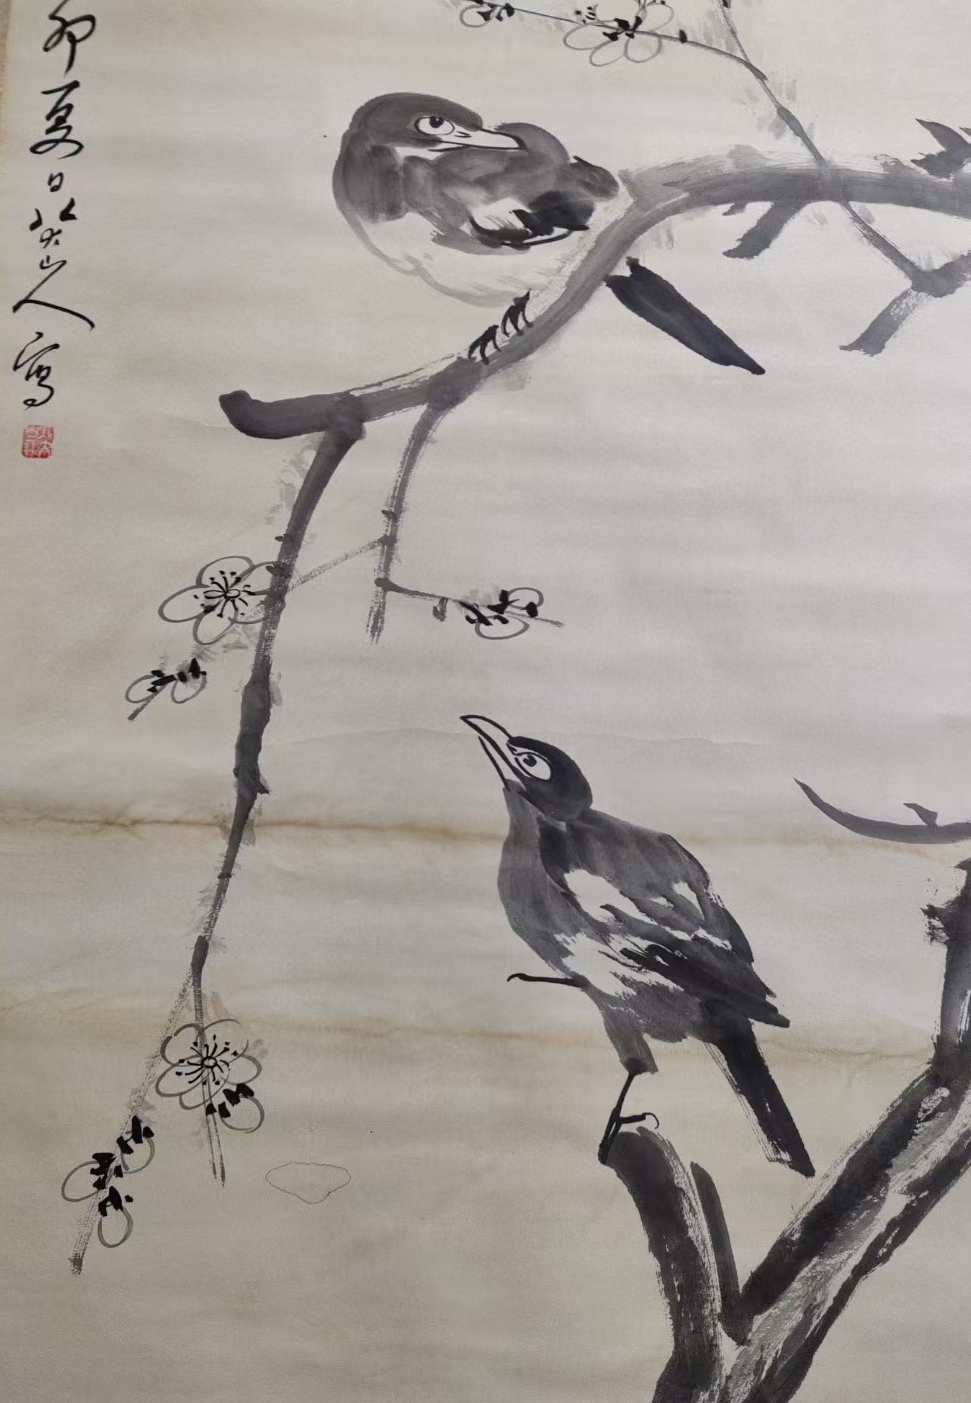 卯夏日八大山人寫